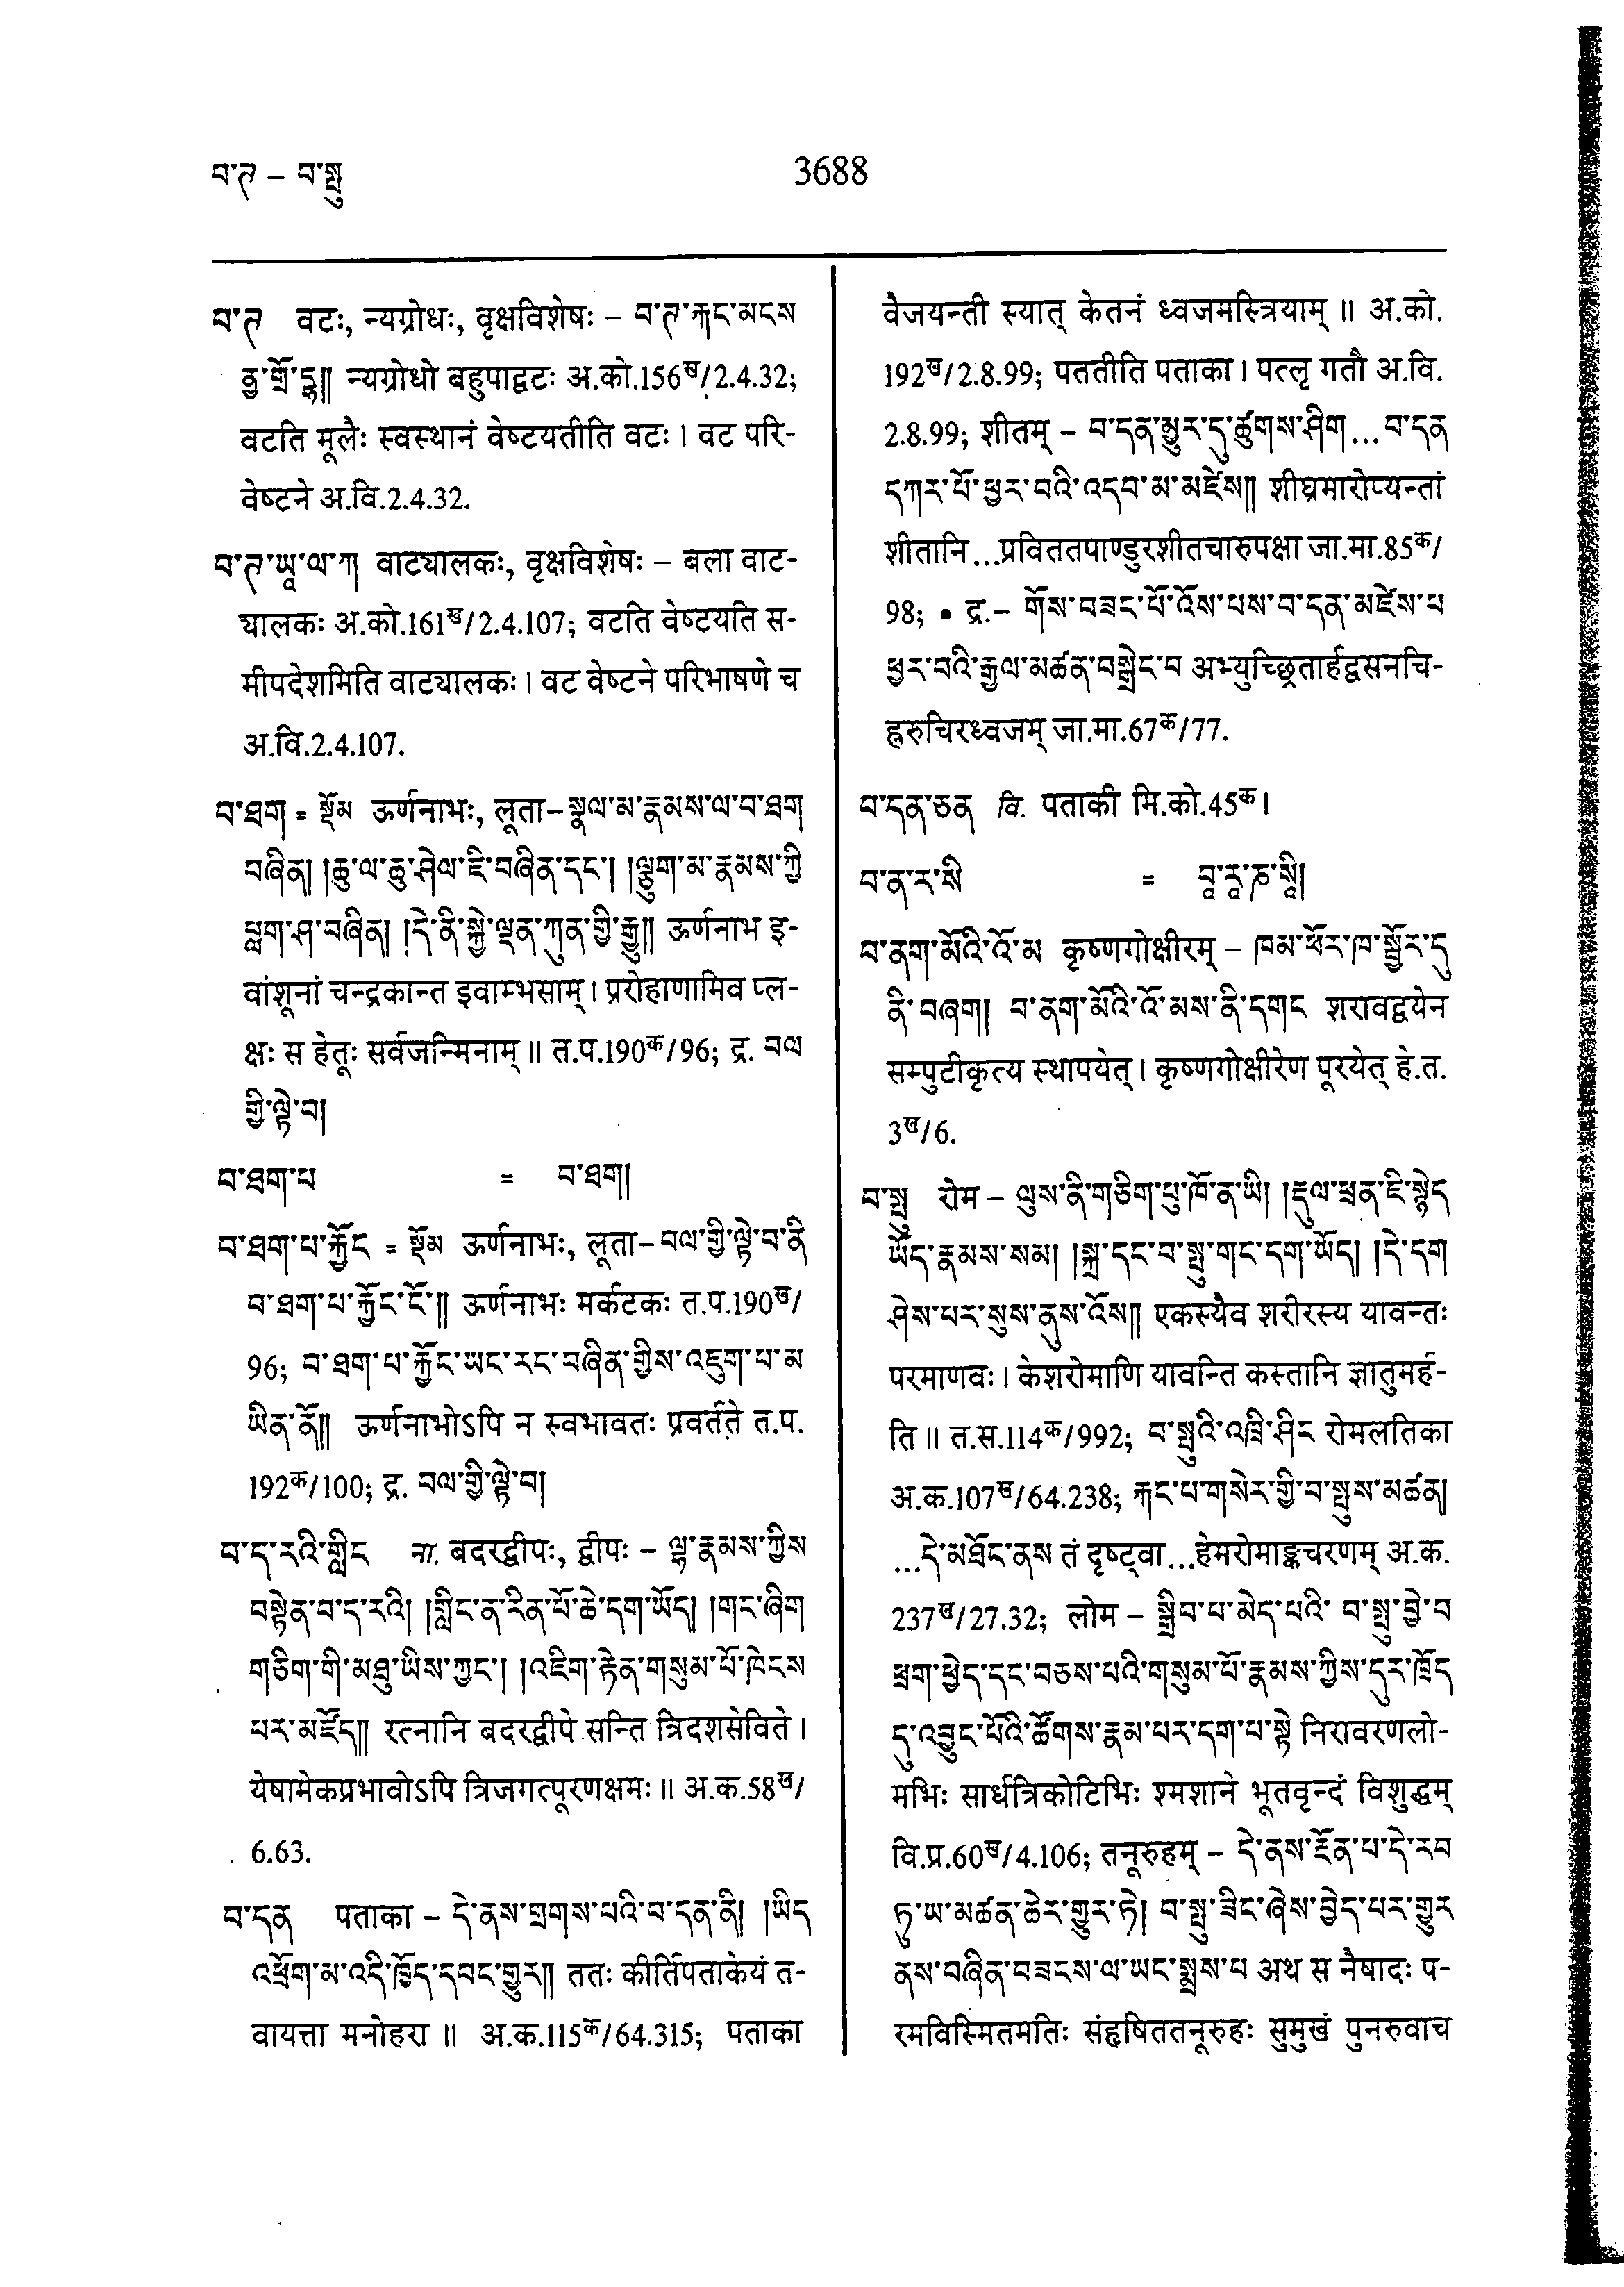 བ་ཊ – བ་སྤུ
3688
བ་ཊ वटः, न्यग्रोधः, वृक्षविशेषः – བ་ཊ་རྐང་མངས
ནྱ་གྲོ་དྷ༎ न्यग्रोधो बहुपाद्वटः अ.को.156ख/2.4.32;
वटति मूलैः स्वस्थानं वेष्टयतीति वटः। वट परि-
वेष्टने अ.वि.2.4.32.
བ་ཊ་ཡཱ་ལ་ཀ། वाट्यालकः, वृक्षविशेषः – बला वाट-
यालकः अ.को.161ख/2.4.107; वटति वेष्टयति स-
मीपदेशमिति वाट्यालकः। वट वेष्टने परिभाषणे च
अ.वि.2.4.107.
བ་ཐག = སྡོམ ऊर्णनाभः, लूता–སྣལ་མ་རྣམས་ལ་བ་ཐག
བཞིན། །ཆུ་ལ་ཆུ་ཤེལ་ཇི་བཞིན་དང་། །ལྕུག་མ་རྣམས་ཀྱི
པླག་ཤ་བཞིན། །དེ་ནི་སྐྱེ་ལྡན་ཀུན་གྱི་རྒྱུ༎ ऊर्णनाभ इ-
वांशूनां चन्द्रकान्त इवाम्भसाम्। प्ररोहाणामिव प्ल-
क्षः स हेतूः सर्वजन्मिनाम्॥ त.प.190क/96; द्र. བལ
གྱི་ལྟེ་བ།
བ་ཐག་པ = བ་ཐག།
བ་ཐག་པ་རྐྱོང = སྡོམ ऊर्णनाभः, लूता–བལ་གྱི་ལྟེ་བ་ནི
བ་ཐག་པ་རྐྱོང་ངོ་༎ ऊर्णनाभः मर्कटकः त.प.190ख/
96; བ་ཐག་པ་རྐྱོང་ཡང་རང་བཞིན་གྱིས་འཇུག་པ་མ
ཡིན་ནོ༎ ऊर्णनाभोऽपि न स्वभावतः प्रवर्तते त.प.
192क/100; द्र. བལ་གྱི་ལྟེ་བ།
བ་ད་རའི་གླིང ना. बदरद्वीपः, द्वीपः – ལྷ་རྣམས་ཀྱིས
བསྟེན་བ་ད་རའི། །གླིང་ན་རིན་པོ་ཆེ་དག་ཡོད། །གང་ཞིག
གཅིག་གི་མཐུ་ཡིས་ཀྱང་། །འཇིག་རྟེན་གསུམ་པོ་ཁེངས
པར་མཛོད༎ रत्नानि बदरद्वीपे सन्ति त्रिदशसेविते।
येषामेकप्रभावोऽपि त्रिजगत्पूरणक्षमः॥ अ.क.58ख/
6.63.
བ་དན पताका – དེ་ནས་གྲགས་པའི་བ་དན་ནི། །ཡིད
འཕྲོག་མ་འདི་ཁྱོད་དབང་གྱུར༎ ततः कीर्तिपताकेयं त-
वायत्ता मनोहरा॥ अ.क.115क/64.315; पताका
वैजयन्ती स्यात् केतनं ध्वजमस्त्रियाम्॥ अ.को.
192ख/2.8.99; पततीति पताका। पत्लृ गतौ अ.वि.
2.8.99; शीतम् – བ་དན་མྱུར་དུ་ཚུགས་ཤིག…བ་དན
དཀར་པོ་ཕྱར་བའི་འདབ་མ་མཛེས༎ शीघ्रमारोप्यन्तां
शीतानि…प्रविततपाण्डुरशीतचारुपक्षा जा.मा.85क/
98; • द्र.– གོས་བཟང་པོ་འོས་པས་བ་དན་མཛེས་པ
ཕྱར་བའི་རྒྱལ་མཚན་བསྒྲེང་བ अभ्युच्छ्रितार्हद्वसनचि-
ह्नरुचिरध्वजम् जा.मा.67क/77.
བ་དན་ཅན वि. पताकी मि.को.45क।
བ་ན་ར་སི = བཱ་རཱ་ཎ་སཱི།
བ་ནག་མོའི་འོ་མ कृष्णगोक्षीरम् – ཁམ་ཕོར་ཁ་སྦྱོར་དུ
ནི་བཞག། བ་ནག་མོའི་འོ་མས་ནི་དགང शरावद्वयेन
सम्पुटीकृत्य स्थापयेत्। कृष्णगोक्षीरेण पूरयेत् हे.त.
3ख/6.
བ་སྤུ रोम – ལུས་ནི་གཅིག་པུ་ཁོ་ན་ཡི། །རྡུལ་ཕྲན་ཇི་སྙེད
ཡོད་རྣམས་སམ། །སྐྲ་དང་བ་སྤུ་གང་དག་ཡོད། །དེ་དག
ཤེས་པར་སུས་ནུས་འོས༎ एकस्यैव शरीरस्य यावन्तः
परमाणवः। केशरोमाणि यावन्ति कस्तानि ज्ञातुमर्ह-
ति॥ त.स.114क/992; བ་སྤུའི་འཁྲི་ཤིང रोमलतिका
अ.क.107ख/64.238; རྐང་པ་གསེར་གྱི་བ་སྤུས་མཚན།
…དེ་མཐོང་ནས तं दृष्ट्वा…हेमरोमाङ्कचरणम् अ.क.
237ख/27.32; लोम – སྒྲིབ་པ་མེད་པའི་ བ་སྤུ་བྱེ་བ
ཕྲག་ཕྱེད་དང་བཅས་པའི་གསུམ་པོ་རྣམས་ཀྱིས་དུར་ཁྲོད
དུ་འབྱུང་པོའི་ཚོགས་རྣམ་པར་དག་པ་སྟེ निरावरणलो-
मभिः सार्धत्रिकोटिभिः श्मशाने भूतवृन्दं विशुद्धम्
वि.प्र.60ख/4.106; तनूरुहम् – དེ་ནས་རྔོན་པ་དེ་རབ
ཏུ་ཡ་མཚན་ཆེར་གྱུར་ཏེ། བ་སྤུ་ཟིང་ཞེས་བྱེད་པར་གྱུར
ནས་བཞིན་བཟངས་ལ་ཡང་སྨྲས་པ अथ स नैषादः प-
रमविस्मितमतिः संहृषिततनूरुहः सुमुखं पुनरुवाच